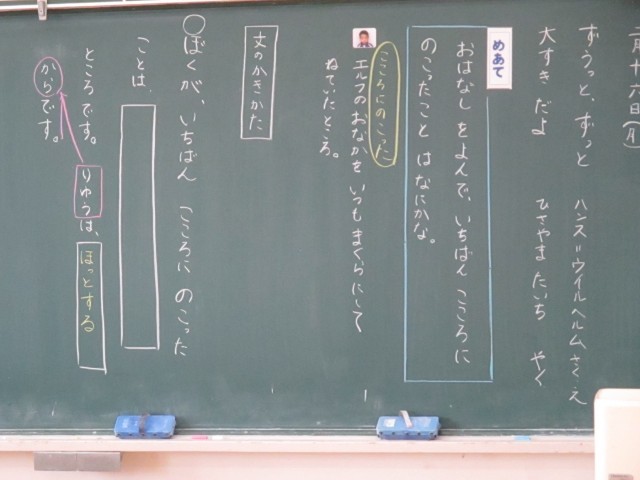 十六日(月)
ずうっと、ずっと
大すきだよ
ハンス=ウイルヘルムさく・え
ひさやま たいち やく
めあて
おはなしをよんで、いちばんこころに
のこったことはなにかな。
こころにのこった
エルフのおなかをいつもまくらにして
ねていたところ。
文のかきかた
ぼくが、いちばん こころに のこった
ことは、
ところです。
りゆうは、
ほっとする
からです。